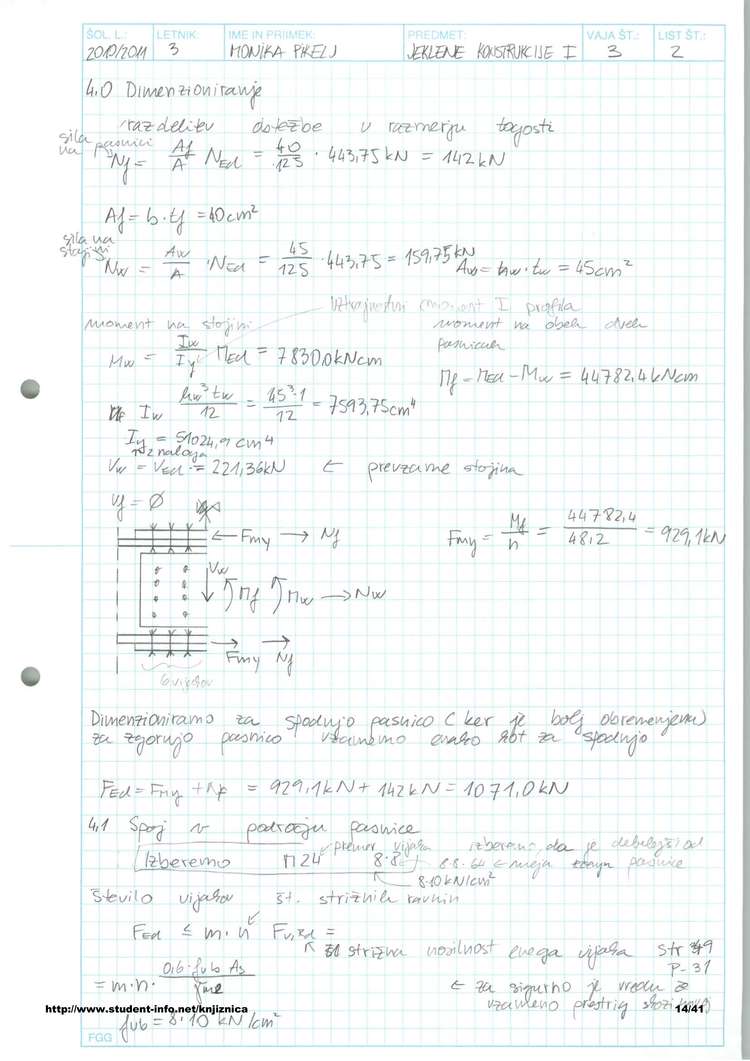 ŠOL. L.: LETNIK: IME IN PRIIMEK: PREDMET: VAJA ŠT.: LIST ŠT.:
2010/2011 3 MONIKA PIKELJ JEKLENE KONSTRUKCIJE I 3 2
4.0 Dimenzioniranje
razdelitev obtežbe v razmerju togosti
sila na pasnici
Nf = Af/A NEd = 40/125 · 443,75 kN = 142 kN
Af = b · tf = 40 cm²
sila na stojini
Nw = Aw/A · NEd = 45/125 · 443,75 = 159,75 kN Aw = hw · tw = 45 cm²
vztrajnostni moment I profila
moment na stojini moment na obeh dveh pasnicah
Mw = Iw/Iy MEd = 7830,0 kNcm
Mf = MEd - Mw = 44782,4 kNcm
Iw hw³ tw/12 = 45³·1/12 = 7593,75 cm⁴
Iy = 51024,9 cm⁴
iz naloge
Vw = VEd = 221,36 kN ← prevzame stojina
Vf = Ø
← Fmy → Nf
Fmy = Mf/h = 44782,4/48,2 = 929,1 kN
Vw
Mf Mw → Nw
Fmy Nf
6 vijakov
Dimenzioniramo za spodnjo pasnico (ker je bolj obremenjena)
za zgornjo pasnico vzamemo enako kot za spodnjo
FEd = Fmy + Nf = 929,1 kN + 142 kN = 1071,0 kN
4.1 Spoj v področju pasnice
premer vijaka izberemo, da je debelejši od
Izberemo M24 8.8 pasnice
8·10 kN/cm²
število vijakov št. strižnih ravnin
FEd ≤ m · n Fv,Rd =
strižna nosilnost enega vijaka str 49
P-31
= m · n · 0,6 · fub As
← za sigurno je vredu če
vzamemo prestrig
http://www.student-info.net/knjiznica 14/41
fub = 8·10 kN/cm²
FGG